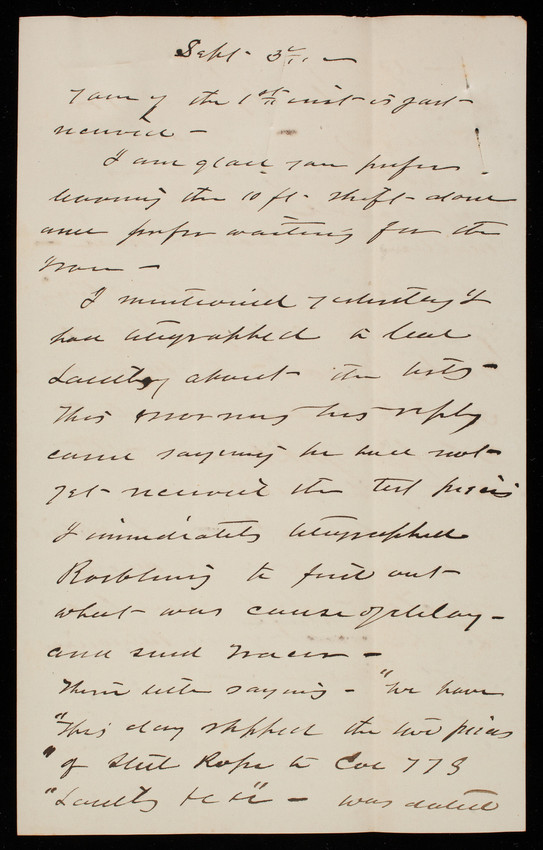 Sept. 3d, —
Yours of the 1st inst is just
received —
I am glad you prefer
leaving the 10 ft. shift alone
and prefer waiting for the
iron —
I mentioned yesterday I
had telegraphed to
about the tests —
This morning his reply
came saying he had not
yet received the test pieces
I immediately telegraphed
Roebling to find out
what was cause of delay —
and send tracer —
Their letter saying — "We have
"this day shipped the two pieces
" of Steel Rope to Col T T S
" &c &c" — was dated